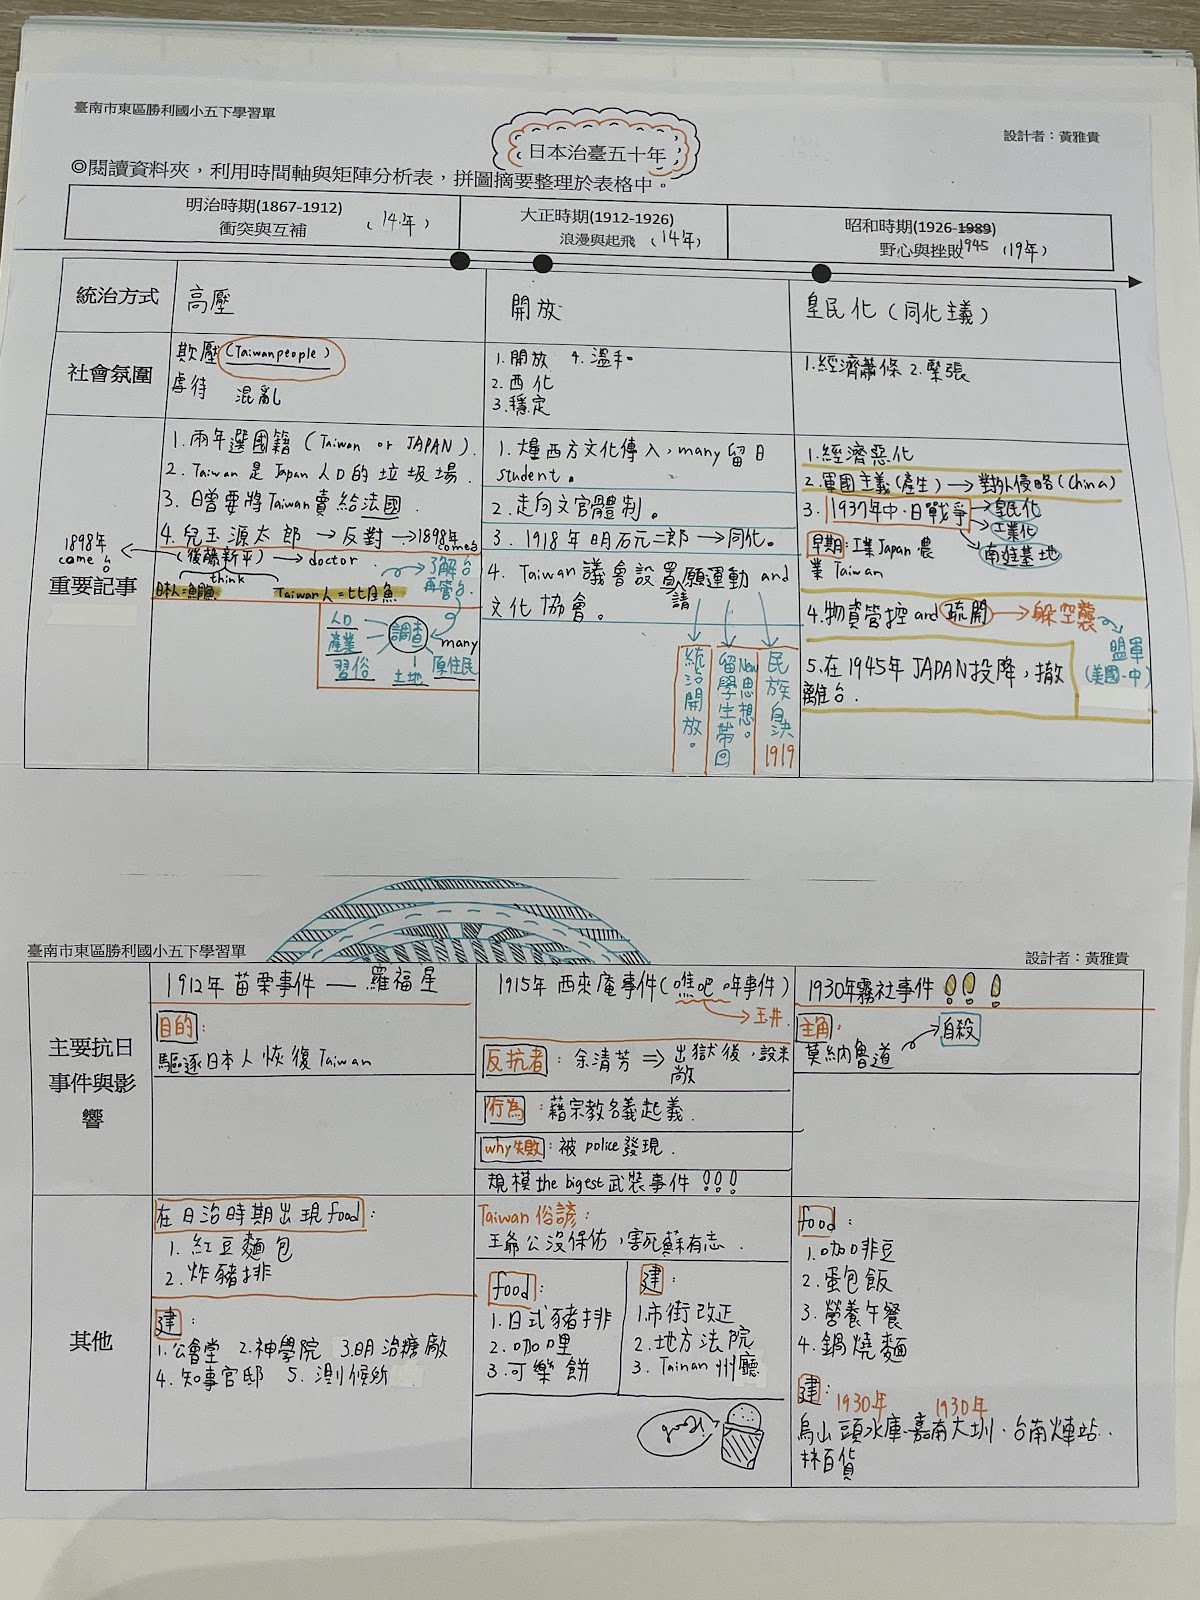 臺南市東區勝利國小五下學習單
設計者：黃雅貴
日本治臺五十年
◎閱讀資料夾，利用時間軸與矩陣分析表，拼圖摘要整理於表格中。
明治時期(1867-1912)
衝突與互補
(14年)
大正時期(1912-1926)
浪漫與起飛
(14年)
昭和時期(1926-1989)
野心與挫敗
1945
(19年)
統治方式
高壓
開放
皇民化(同化主義)
社會氛圍
欺壓(Taiwan people)
虐待 混亂
1.開放 4.溫和
2.西化
3.穩定
1.經濟蕭條 2.緊張
重要記事
1898年
came to
1.兩年選國籍(Taiwan or JAPAN).
2. Taiwan 是 Japan 人口的垃圾場.
3. 日曾要將Taiwan賣給法國.
4. 兒玉源太郎→反對→1898年
comes
(後藤新平)→doctor
了解台
再管台.
think
日本人=鯛魚
Taiwan人=比目魚
人口
產業
習俗
調查
土地
many
原住民
1.西方文化傳入,many留日
student。
2.走向文官體制。
3. 1918年明石元二郎→同化。
4. Taiwan議會設置請願運動 and
文化協會。
統治開放。
留學生帶回
New思想。
民族自決
1919
1.經濟惡化
2.軍國主義(產生)→對外侵略(China)
3. 1937年中.日戰爭→皇民化
→工業化
→南進基地
早期:工業Japan農
業Taiwan
4.物資管控and疏開→躲空襲
盟軍
(美國.中)
5.在1945年JAPAN投降,撤
離台.
臺南市東區勝利國小五下學習單
設計者：黃雅貴
主要抗日
事件與影
響
1912年苗栗事件—羅福星
目的:
驅逐日本人恢復Taiwan
1915年西來庵事件(噍吧哖事件)
→玉井.
反抗者: 余清芳⇒出獄後,設
行為:藉宗教名義起義.
why失敗:被police發現.
規模the bigest武裝事件!!!
1930年霧社事件!!!
主角:
莫納魯道
自殺
其他
在日治時期出現food:
1. 紅豆麵包
2. 炸豬排
建:
1.公會堂 2.神學院 3.明治糖廠
4.知事官邸 5.測候所
Taiwan俗諺:
王爺公沒保佑,害死蘇有志.
food:
1.日式豬排
2.咖哩
3.可樂餅
建:
1.市街改正
2.地方法院
3. Tainan州廳
food
food:
1.咖啡豆
2.蛋包飯
3.營養午餐
4.鍋燒麵
建:
1930年 1930年
烏山頭水庫.嘉南大圳.台南車站.
林百貨